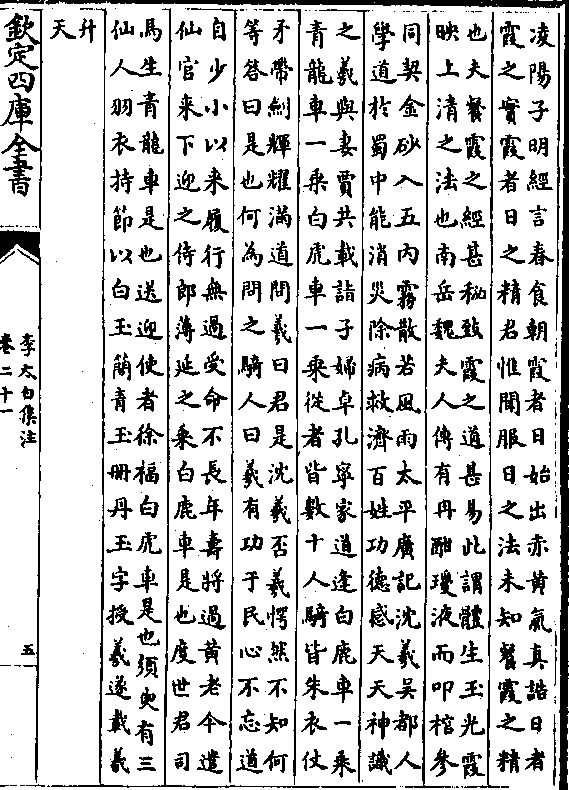 凌陽子明經言春食朝霞者日始出赤黃氣真誥日者
霞之實霞者日之精君惟聞服日之法未知餐霞之精
也夫餐霞之經甚秘致霞之道甚易此謂體生玉光霞
映上清之法也南岳魏夫人傳有丹酣瓊液而叩棺參
同契金砂入五內霧散若風雨太平廣記沈羲吳郡人
學道於蜀中能消災除病救濟百姓功德感天天神識
之羲與妻賈共載詣子婦卓孔寧家道逢白鹿車一乘
青龍車一乘白虎車一乘從者皆數十人騎皆朱衣仗
矛帶劍輝耀滿道問羲曰君是沈羲否羲愕然不知何
等答曰是也何為問之騎人曰羲有功于民心不忘道
自少小以来履行無過受命不長年壽將過黃老今遣
仙官来下迎之侍郎薄延之乘白鹿車是也度世君司
馬生青龍車是也送迎使者徐福白虎車是也須臾有三
仙人羽衣持節以白玉簡青玉冊丹玉字授羲遂載羲
升
天
欽定四庫全書
李太白集注
卷二十一
五